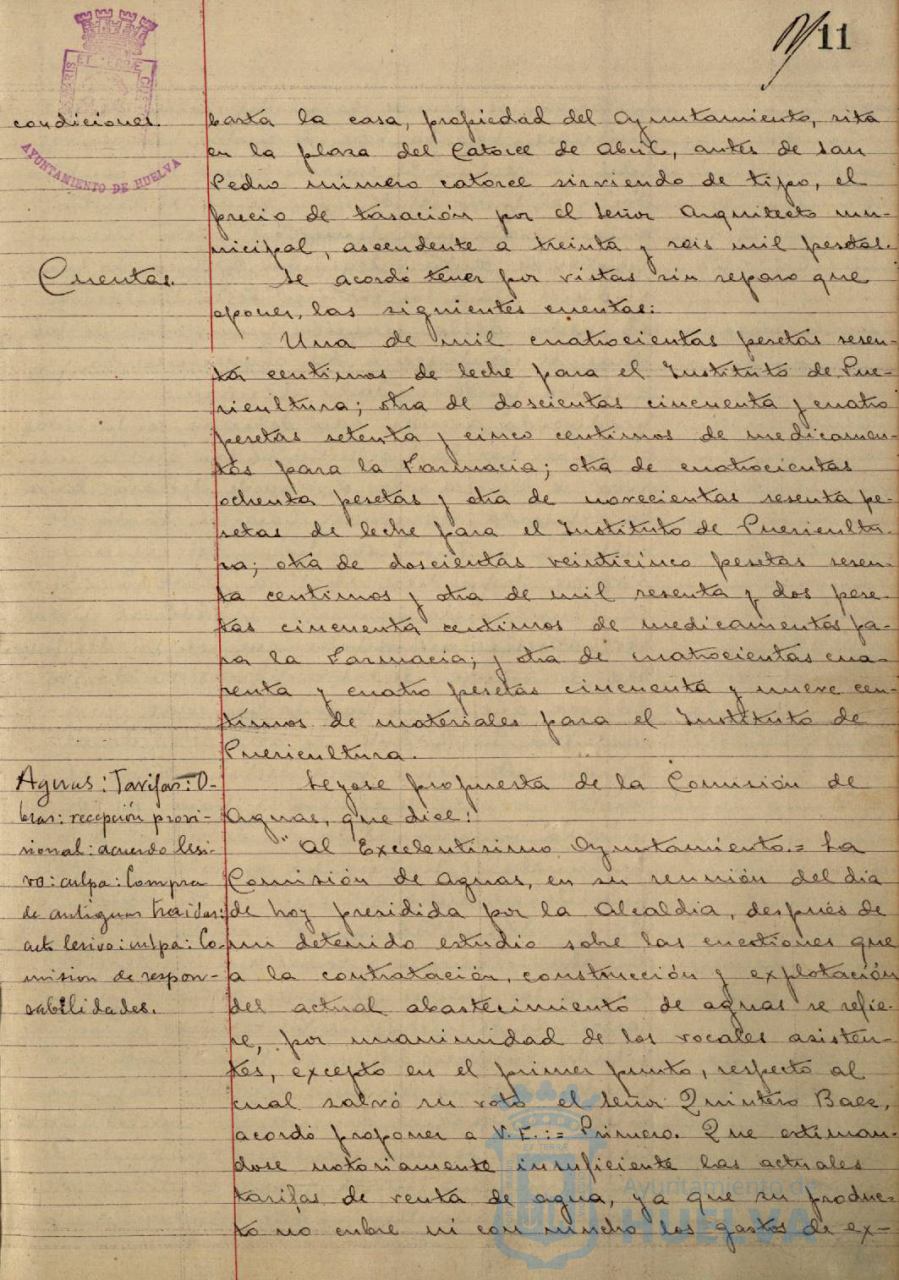 11
condiciones.
AYUNTAMIENTO DE HUELVA
basta la casa, propiedad del Ayuntamiento, sita
en la plaza del Catorce de Abril, antes de San
Pedro número catorce sirviendo de tipo, el
precio de tasación por el Señor Arquitecto mu-
nicipal, ascendente a treinta y seis mil pesetas.
Cuentas.
Se acordó tener por vistas sin reparo que
oponer, las siguientes cuentas:
Una de mil cuatrocientas pesetas sesen-
ta centimos de leche para el Instituto de Pue-
ricultura; otra de doscientas cincuenta y cuatro
pesetas setenta y cinco centimos de medicamen-
tos para la Farmacia; otra de cuatrocientas
ochenta pesetas y otra de novecientas sesenta pe-
setas de leche para el Instituto de Puericultu-
ra; otra de doscientas veinticinco pesetas sesen-
ta centimos y otra de mil sesenta y dos pese-
tas cincuenta centimos de medicamentos pa-
ra la Farmacia; y otra de cuatrocientas cua-
renta y cuatro pesetas cincuenta y nueve cen-
timos de materiales para el Instituto de
Puericultura.
Aguas: Tarifas: O-
bras: recepción provi-
sional: acuerdo lesi-
vo: culpa: Compra
de antiguas traidas:
acto lesivo: culpa: Co-
mision de respon-
sabilidades.
Leyose propuesta de la Comisión de
Aguas, que dice:
"Al Excelentísimo Ayuntamiento.= La
Comisión de Aguas, en su reunión del día
de hoy presidida por la Alcaldia, después de
un detenido estudio sobre las cuestiones que
a la contratación, construcción y explotación
del actual abastecimiento de aguas se refie-
re, por unanimidad de los vocales asisten-
tes, excepto en el primer punto, respecto al
cual salvó su voto el Señor Quintero Baez,
acordó proponer a V.E.:= Primero. Que estiman-
dose notoriamente insuficiente las actuales
tarifas de venta de agua, ya que su produc-
to no cubre ni con mucho los gastos de ex-
Ayuntamiento de
HUELVA